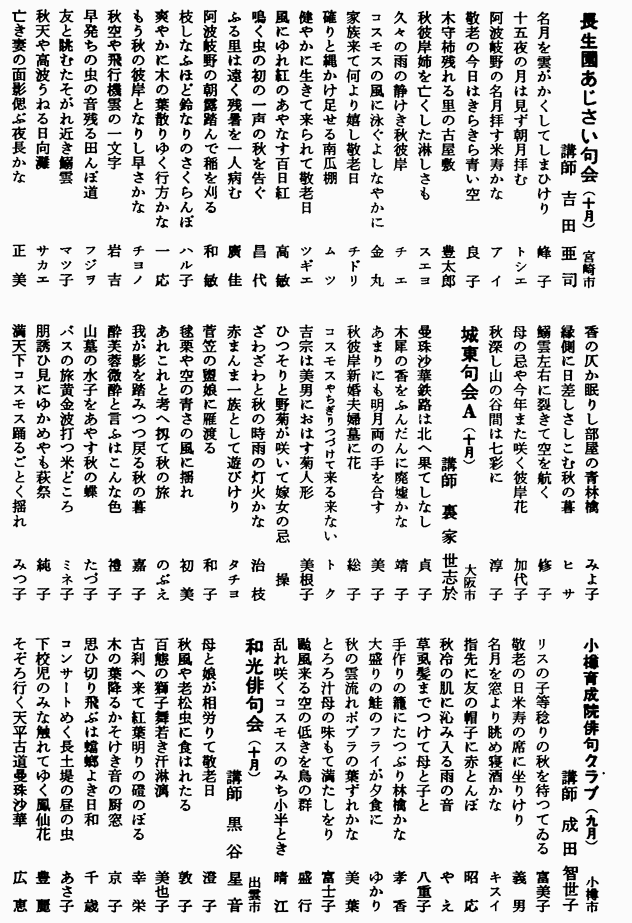 長生園あじさい句会（十月） 宮崎市
講師 吉田 亜司
名月を雲がかくしてしまひけり 峰子
十五夜の月は見ず朝月拝む トシエ
阿波岐野の名月拝す米寿かな アイ
敬老の今日はきらきら青い空 良子
木守柿残れる里の古屋敷 豊太郎
秋彼岸姉を亡くした淋しさも スエヨ
久々の雨の静けき秋彼岸 チエ
コスモスの風に泳ぐよしなやかに 金丸
家族来て何より嬉し敬老日 チドリ
確りと縄かけ足せる南瓜棚 ムツ
健やかに生きて来られて敬老日 ツギエ
風にゆれ紅のあやなす百日紅 高敏
鳴く虫の初の一声の秋を告ぐ 昌代
ふる里は遠く残暑を一人病む 廣佳
阿波岐野の朝露踏んで稲を刈る 和敏
枝しなふほど鈴なりのさくらんぼ ハル子
爽やかに木の葉散りゆく行方かな 一応
もう秋の彼岸となりし早さかな チヨノ
秋空や飛行機雲の一文字 岩吉
早発ちの虫の音残る田んぼ道 フジヲ
友と眺むたそがれ近き鰯雲 マツ子
秋天や高波うねる日向灘 サカエ
亡き妻の面影偲ぶ夜長かな 正美
香の仄か眠りし部屋の青林檎 みよ子
縁側に日差しさしこむ秋の暮 ヒサ
鰯雲左右に裂きて空を航く 修子
母の忌や今年また咲く彼岸花 加代子
秋深し山の谷間は七彩に 淳子
城東句会A（十月） 大阪市
講師 裏家 世志於
曼珠沙華鉄路は北へ果てしなし 貞子
木犀の香をふんだんに廃墟かな 靖子
あまりにも明月両の手を合す 美子
秋彼岸新婚夫婦墓に花 総子
コスモスやちぎりつづけて来る来ない トク
吉宗は美男におはす菊人形 美根子
ひつそりと野菊が咲いて嫁女の忌 操
ざわざわと秋の時雨の灯火かな 治枝
赤まんま一族として遊びけり タチヨ
菅笠の盥娘に雁渡る 和子
毬栗や空の青さの風に揺れ 初美
あれこれと考へ拐て秋の旅 のぶえ
我が影を踏みつつ戻る秋の暮 嘉子
酔芙蓉微酔と言ふはこんな色 禮子
山墓の水子をあやす秋の蝶 たづ子
バスの旅黄金波打つ米どころ ミネ子
朋誘ひ見にゆかめやも萩祭 純子
満天下コスモス踊るごとく揺れ みつ子
小樽育成院俳句クラブ（九月） 小樽市
講師 成田 智世子
リスの子等稔りの秋を待つてゐる 富美子
敬老の日米寿の席に坐りけり 義男
名月を窓より眺め寝酒かな キスイ
指先に友の帽子に赤とんぼ 昭応
秋冷の肌に沁み入る雨の音 やえ
草虱髪までつけて母と子と 八重子
手作りの籠にたつぷり林檎かな 孝香
大盛りの鮭のフライが夕食に ゆかり
秋の雲流れポプラの葉ずれかな 美葉
とろろ汁母の味もて満たしをり 富士子
颱風来る空の低きを鳥の群 盛行
乱れ咲くコスモスのみち小半とき 晴江
和光俳句会（十月） 出雲市
講師 黒谷 星音
母と娘が相労りて敬老日 澄子
秋風や老松虫に食はれたる 敦子
百態の獅子舞若き汗淋漓 美也子
古刹へ来て紅葉明りの磴のぼる 幸栄
木の葉降るかそけき音の厨窓 京子
思ひ切り飛ぶは蟷螂よき日和 千歳
コンサートめく長土堤の昼の虫 あさ子
下校児のみな触れてゆく鳳仙花 豊麗
そぞろ行く天平古道曼珠沙華 広恵